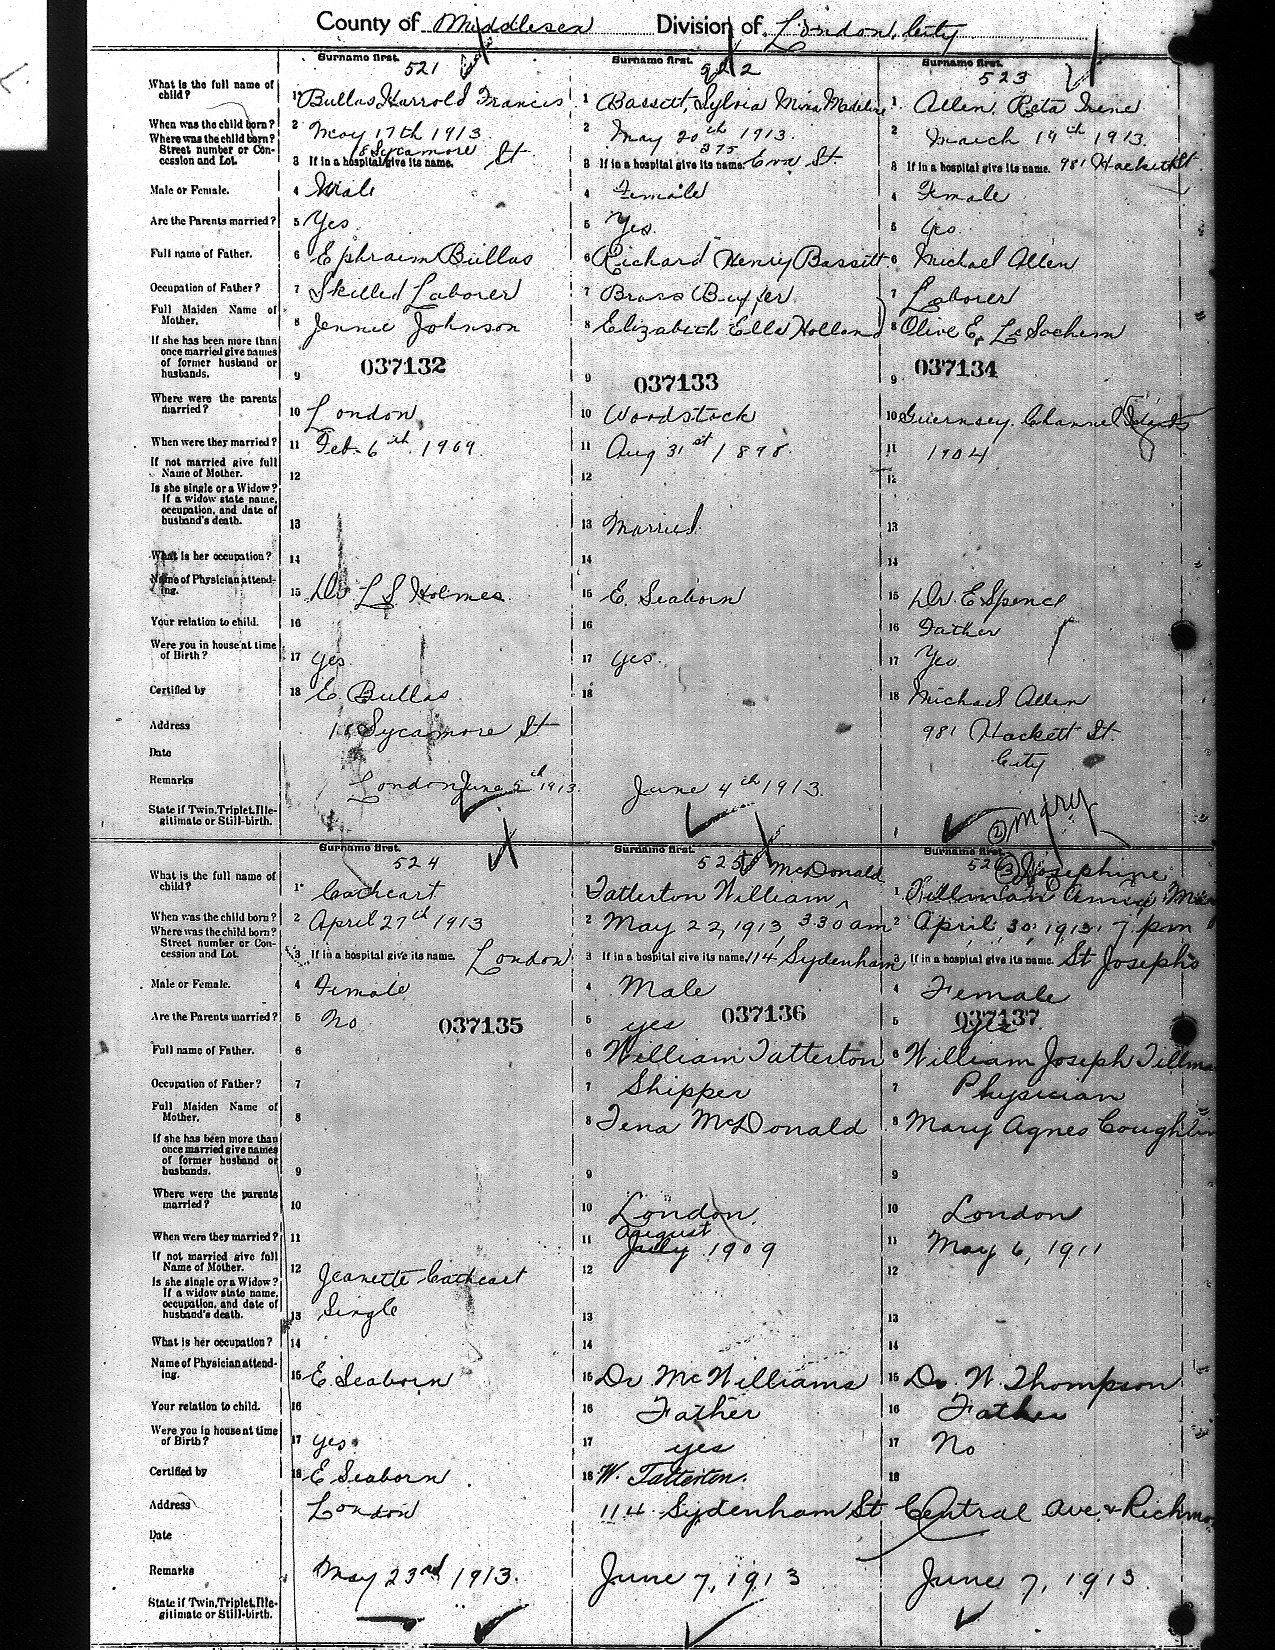 County of Middlesex Division of London City
Surname first. Surname first. Surname first.
521 522 523
What is the full name of child? 1 Bullas Harrold Francis 1 Bassett, Sylvia Mina Madeline 1 Allen, Reta Irene
When was the child born? 2 May 17th 1913. 2 May 20th 1913. 2 March 19th 1913.
Where was the child born? Street number or Concession and Lot. 3 If in a hospital give its name. 18 Sycamore St 3 If in a hospital give its name. 375 St. 3 If in a hospital give its name. 981 Hackett St.
Male or Female. 4 Male 4 Female 4 Female
Are the Parents married? 5 Yes 5 Yes. 5 Yes.
Full name of Father. 6 Ephraim Bullas 6 Richard Henry Bassett 6 Michael Allen
Occupation of Father? 7 Skilled Laborer 7 Brass Buffer 7 Laborer
Full Maiden Name of Mother. 8 Jennie Johnson 8 Elizabeth Ella Holland 8 Olive E.
If she has been more than once married give names of former husband or husbands. 9 037132 9 037133 9 037134
Where were the parents married? 10 London 10 Woodstock 10 Guernsey Channel
When were they married? 11 Feb. 6th 1909. 11 Aug 31st 1898. 11 1904
If not married give full Name of Mother. 12 12 12
Is she single or a Widow? If a widow state name, occupation, and date of husband's death. 13 13 Married. 13
What is her occupation? 14 14 14
Name of Physician attending. 15 Dr L S Holmes 15 E. Seaborn 15 Dr. E Spence
Your relation to child. 16 16 16 Father
Were you in house at time of Birth? 17 yes 17 yes. 17 Yes
Certified by 18 E. Bullas 18 18 Michael Allen
Address 18 Sycamore St 981 Hackett St.
Date City
Remarks London June 2th 1913. June 4th 1913.
State if Twin, Triplet, Illegitimate or Still-birth. ② Mary
Surname first. Surname first. Surname first.
524 525 McDonald ③ Josephine
What is the full name of child? 1 Cathcart 1 Tatterton William 1 Tillman
When was the child born? 2 April 27th 1913 2 May 22, 1913, 3.30 am 2 April 30, 1913, 7 pm
Where was the child born? Street number or Concession and Lot. 3 If in a hospital give its name. London 3 If in a hospital give its name. 114 Sydenham 3 If in a hospital give its name. St Josephs
Male or Female. 4 Female 4 Male 4 Female
Are the Parents married? 5 No 037135 5 yes 037136 5 yes 037137
Full name of Father. 6 6 William Tatterton 6 William Joseph Tillman
Occupation of Father? 7 7 Shipper 7 Physician
Full Maiden Name of Mother. 8 8 Tena McDonald 8 Mary Agnes Coughlin
If she has been more than once married give names of former husband or husbands. 9 9 9
Where were the parents married? 10 10 London 10 London
When were they married? 11 11 August July 1909 11 May 6, 1911
If not married give full Name of Mother. 12 Jeanette Cathcart 12 12
Is she single or a Widow? If a widow state name, occupation, and date of husband's death. 13 Single 13 13
What is her occupation? 14 14 14
Name of Physician attending. 15 E. Seaborn 15 Dr McWilliams 15 Dr. W. Thompson
Your relation to child. 16 16 Father 16 Father
Were you in house at time of Birth? 17 yes 17 yes 17 No
Certified by 18 E Seaborn 18 W. Tatterton. 18
Address London 114 Sydenham St Central Ave &
Date
Remarks May 23rd 1913. June 7, 1913 June 7, 1913.
State if Twin, Triplet, Illegitimate or Still-birth.